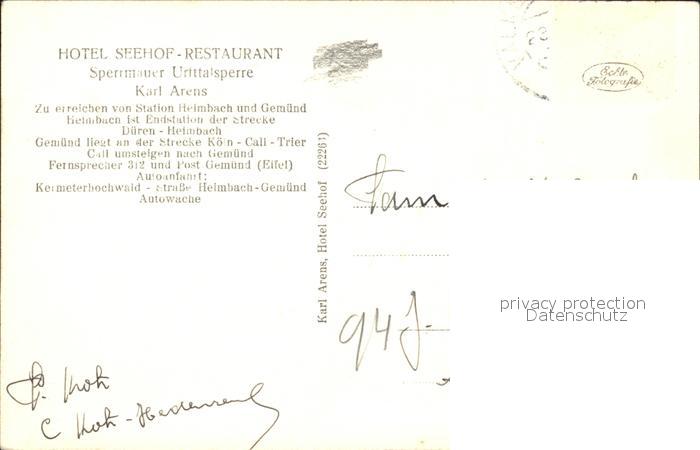 HOTEL SEEHOF-RESTAURANT
Sperrmauer Urfttalsperre
Karl Arens
Zu erreichen von Station Heimbach und Gemünd
Heimbach ist Endstation der Strecke
Düren - Heimbach
Gemünd liegt an der Strecke Köln - Call - Trier
Call umsteigen nach Gemünd
Fernsprecher 312 und Post Gemünd (Eifel)
Autoanfahrt:
Kermeterhochwald - Straße Heimbach-Gemünd
Autowache
Karl Arens, Hotel Seehof (22264)
Echte
Fotografie
23
Fam
94 J.
privacy protection
Datenschutz
Koh
C Koh-